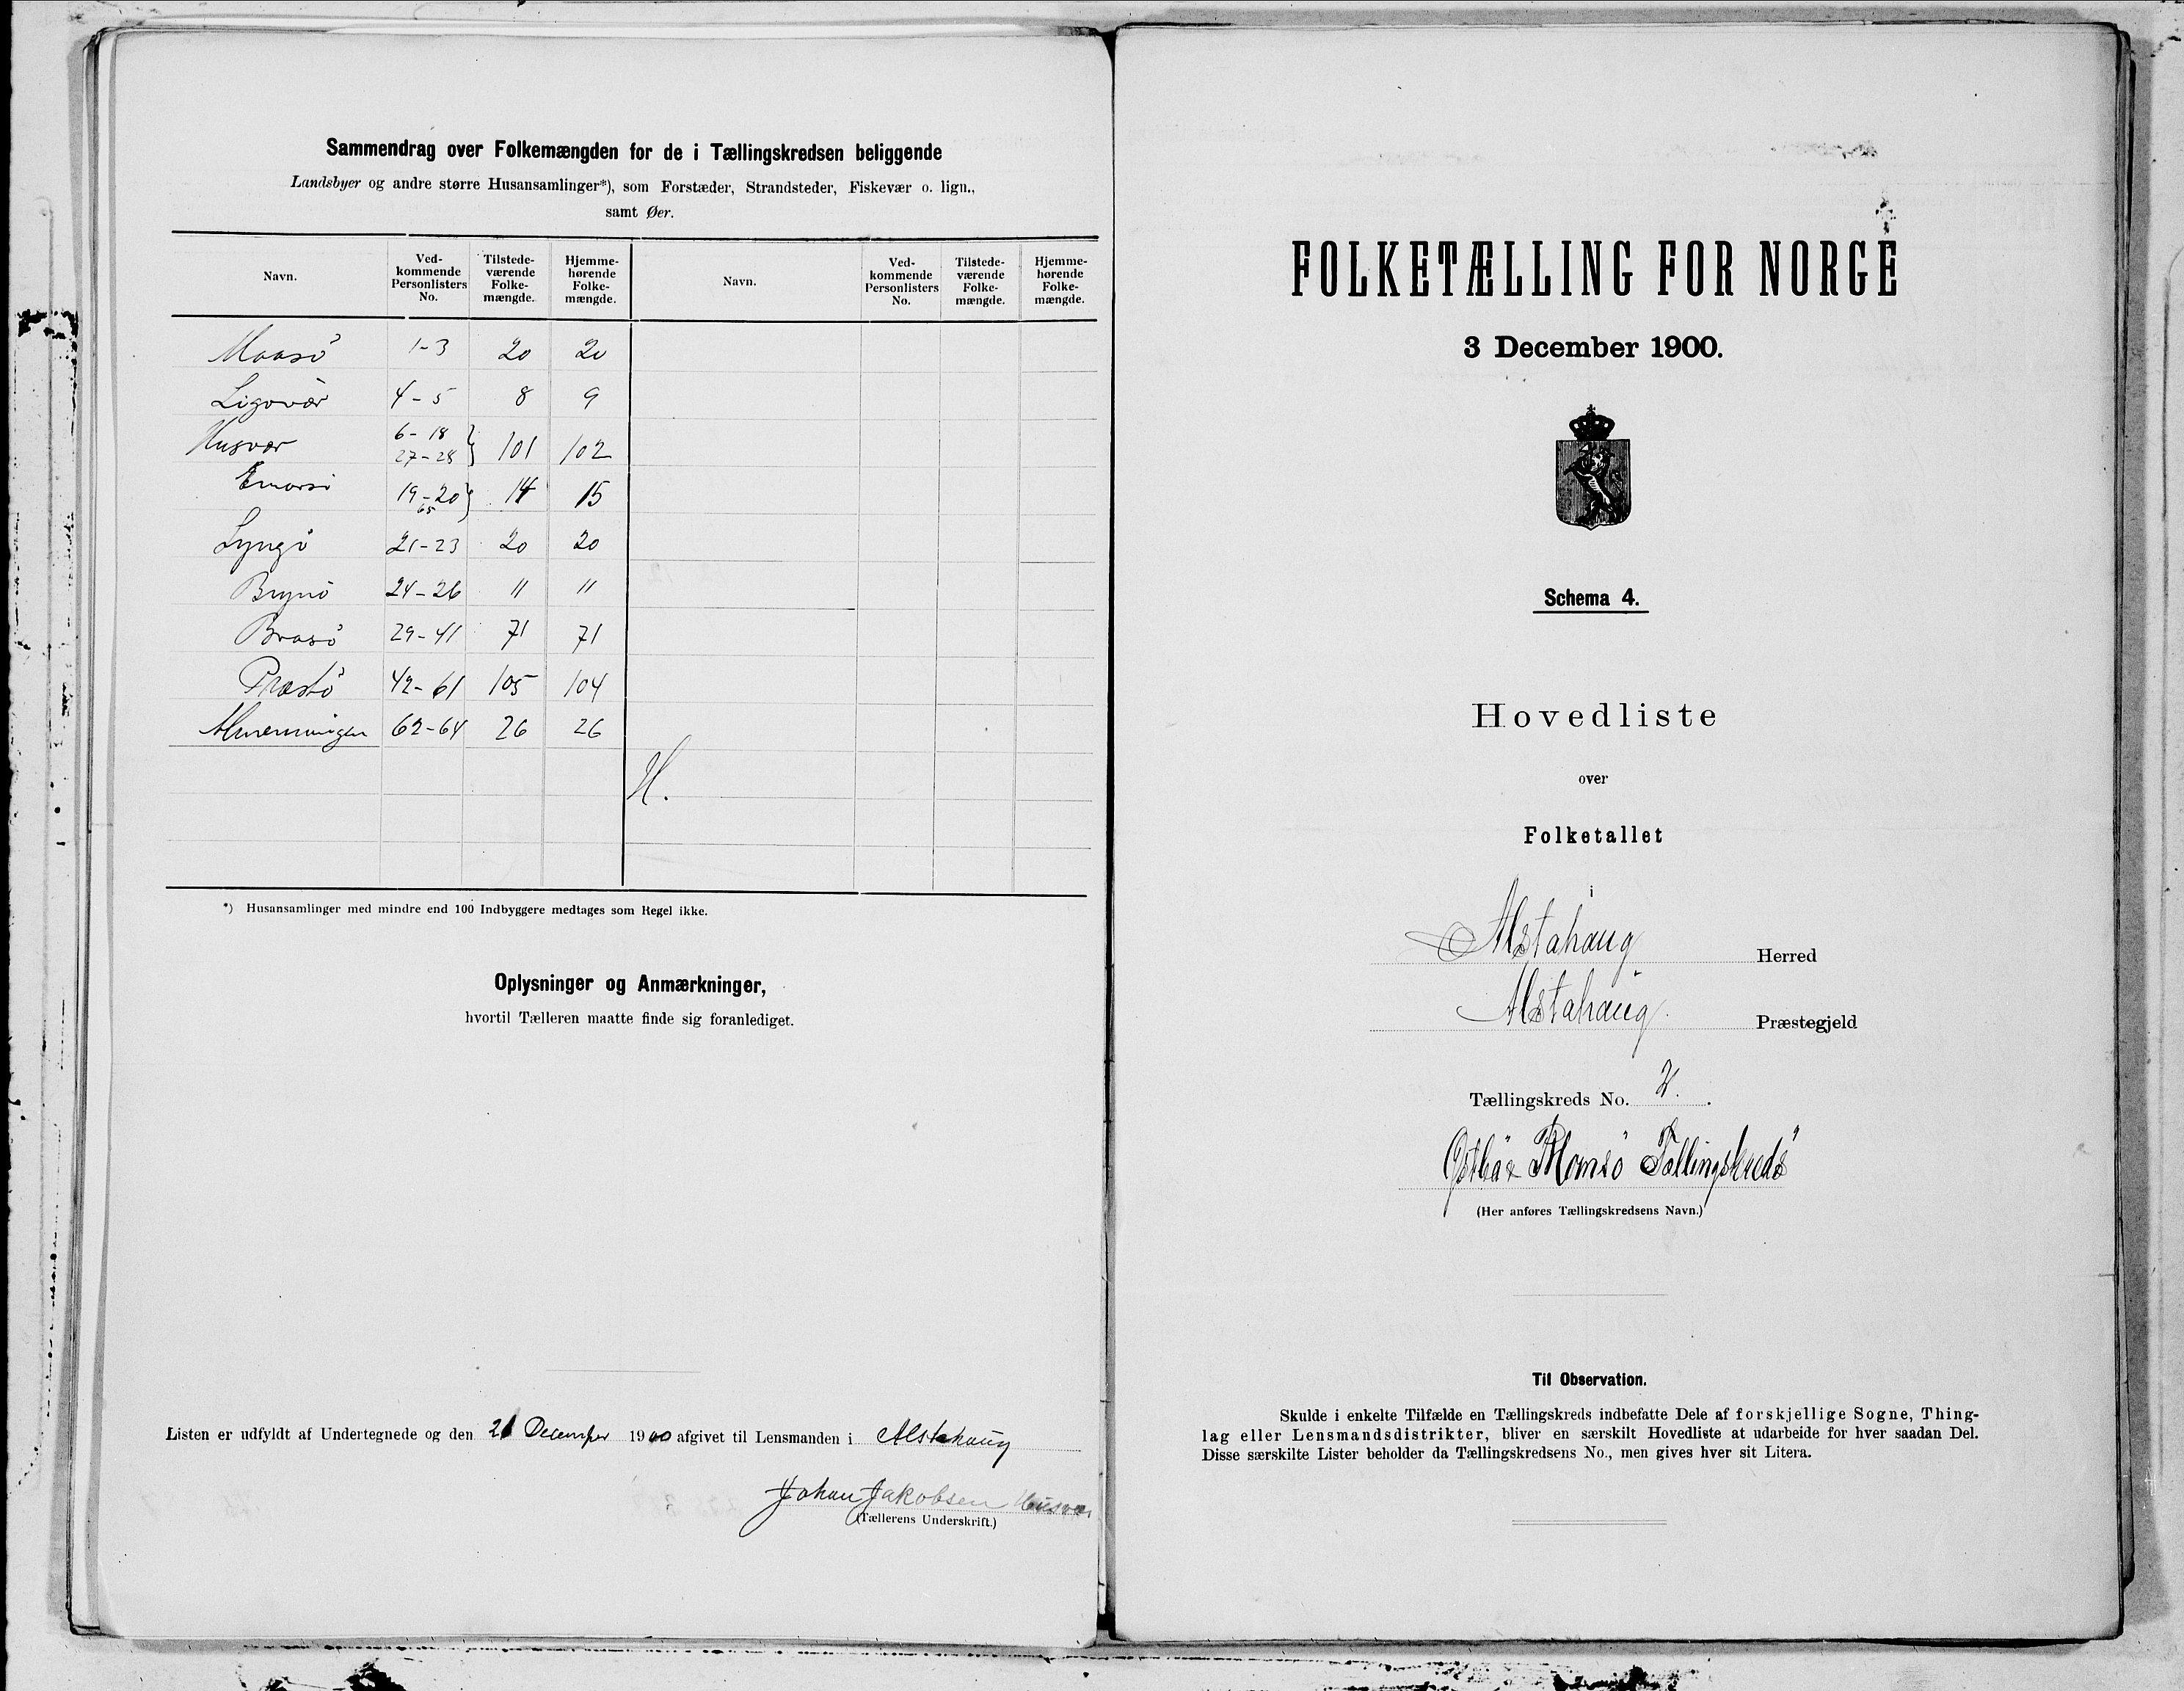 Sammendrag over Folkemængden for de i Tællingskredsen beliggende
Landsbyer og andre større Husansamlinger*), som Forstæder, Strandsteder, Fiskevær o. lign.,
samt Øer.
Navn. Ved-kommende Personlisters No. Tilstede-værende Folke-mængde. Hjemme-hørende Folke-mængde. Navn. Ved-kommende Personlisters No. Tilstede-værende Folke-mængde. Hjemme-hørende Folke-mængde.
Maasö 1-3 20 20
Ligovær 4-5 8 9
Husvær 6-18 27-28 } 101 102
19-20 65 } 14 15
Lyngö 21-23 20 20
Brynö 24-26 11 11
Brasö 29-41 71 71
Præstö 42-61 105 104
Almenningen 62-64 26 26
H.
*) Husansamlinger med mindre end 100 Indbyggere medtages som Regel ikke.
Oplysninger og Anmærkninger,
hvortil Tælleren maatte finde sig foranlediget.
Listen er udfyldt af Undertegnede og den 21 December 1900 afgivet til Lensmanden i Alstahaug
Johan Jakobsen Husvær
(Tællerens Underskrift.)
FOLKETÆLLING FOR NORGE
3 December 1900.
Schema 4.
Hovedliste
over
Folketallet
i
Alstahaug Herred
Alstahaug Præstegjeld
Tællingskreds No. 2.
Blomsö Tællingskreds
(Her anføres Tællingskredsens Navn.)
Til Observation.
Skulde i enkelte Tilfælde en Tællingskreds indbefatte Dele af forskjellige Sogne, Thing-
lag eller Lensmandsdistrikter, bliver en særskilt Hovedliste at udarbeide for hver saadan Del.
Disse særskilte Lister beholder da Tællingskredsens No., men gives hver sit Litera.